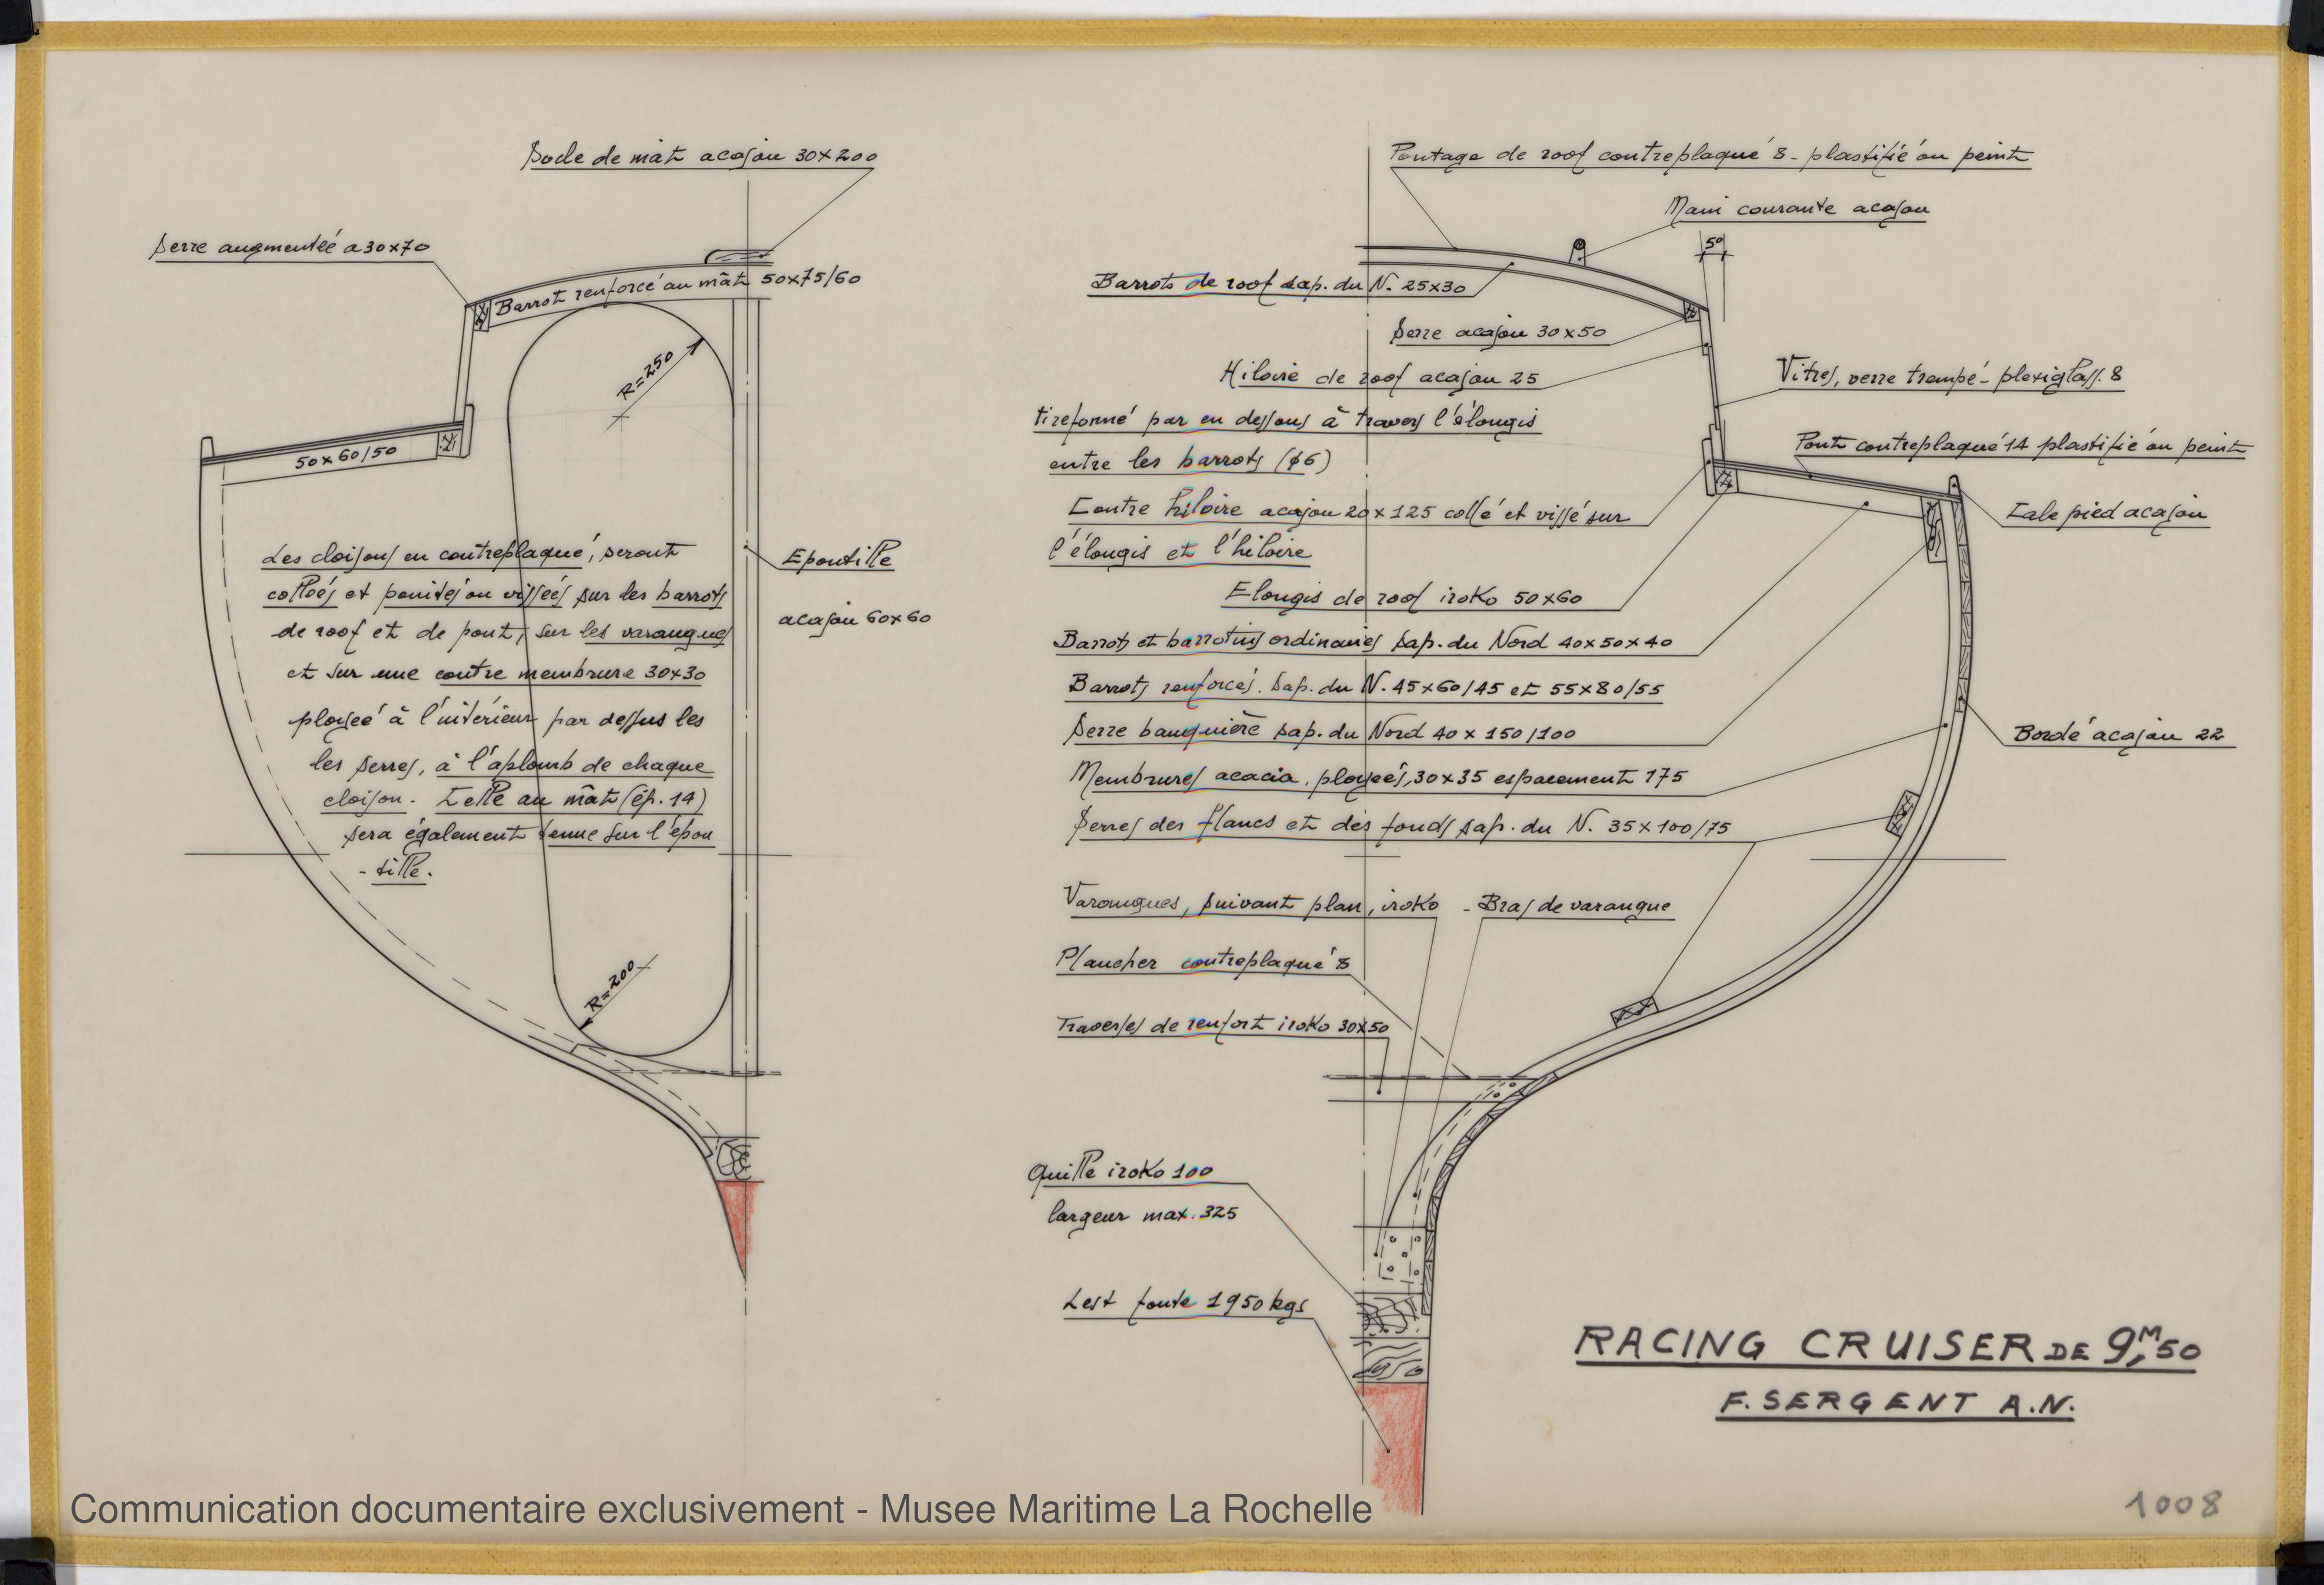 Socle de mât acajou 30x200
Serre augmentée a 30x70
Barrot renforcé au mât 50x75/60
R=250
50x60/50
Les cloisons en contreplaqué, seront
collées et pointés ou vissées sur les barrots
de roof et de pont, sur les varangues
et sur une contre membrure 30x30
ployée à l'intérieur par dessus les
les serres, à l'aplomb de chaque
cloison. Celle au mât (ép. 14)
sera également tenue sur l'épon
-tille.
Epontille
acajou 60x60
R=200
Pontage de roof contreplaqué 8 - plastifié ou peint
Main courante acajou
5°
Barrots de roof sap. du N. 25x30
Serre acajou 30x50
Hiloire de roof acajou 25
tirefonné par en dessous à travers l'élongis
entre les barrots (ϕ6)
Vitres, verre trempé - plexiglass. 8
Pont contreplaqué 14 plastifié ou peint
Contre hiloire acajou 20x125 collé et vissé sur
l'élongis et l'hiloire
Cale pied acajou
Elongis de roof iroko 50x60
Barrots et barrotins ordinaires Sap. du Nord 40x50x40
Barrots renforcés. Sap. du N. 45x60/45 et 55x80/55
Serre bauquière sap. du Nord 40x150/100
Bordé acajou 22
Membrures acacia, ployées, 30x35 espacement 175
Serres des flancs et des fonds sap. du N. 35x100/75
Varangues, suivant plan, iroko - Bras de varangue
Plancher contreplaqué 8
Traverses de renfort iroko 30x50
Quille iroko 100
largeur max. 325
Lest fonte 1950 kgs
RACING CRUISER DE 9,M50
F. SERGENT A.N.
Communication documentaire exclusivement - Musee Maritime La Rochelle
1008